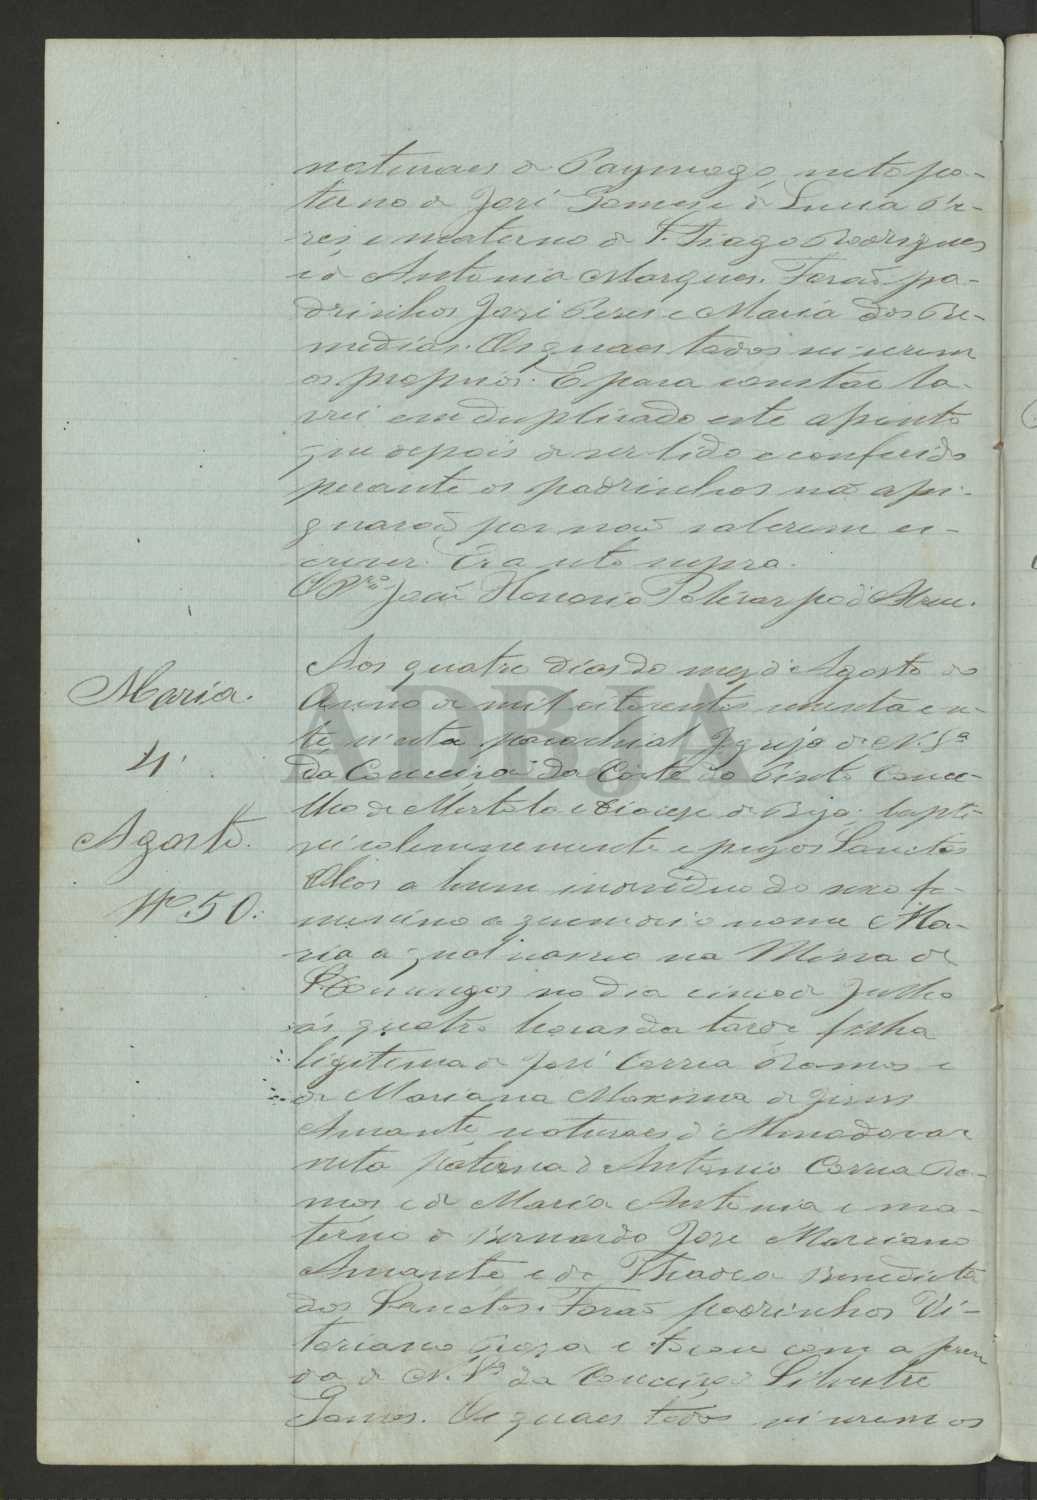 naturaes de Paymogo, neto pa-
terno de José Gomes e de Lucia Pe-
res e materno de Thiago Rodrigues
e de Antonia Marques. Forão pa-
drinhos José Peres e Maria dos Re-
medios. Os quaes todos sei serem
os proprios. E para constar la-
vrei em duplicado este assento
que depois de ser lido e conferido
perante os padrinhos não assi-
gnarão por não saberem es-
crever. Era ut supra.
O Pr.º João Honorio Policarpo d'Abreu.
Maria.
4
Agosto.
Nº 50.
Aos quatro dias do mez d'Agosto do
Anno de mil oitocentos e
nesta parochial Igreja de N. Sª
da Conceição da Corte do Pinto Conce-
lho de Mertola e Diocese de Beja: bapti-
zei solemnemente e puz os Sanctos
Oleos a hum individuo do sexo fe-
menino a quem dei o nome Ma-
ria a qual nasceo na Mina de
S. Domingos no dia cinco de Julho
ás quatro horas da tarde filha
ligitima de José Correa Ramos e
de Mariana Maxima de Jesus
Amante, naturaes d'Almodovar
neta paterna d'Antonio Correa Ra-
mos e de Maria Antonia e ma-
terno de Bernardo José Marciano
Amante e de Thadea Benedicta
dos Sanctos. Forão padrinhos Vi-
toriano e tocou com a pren
da de N. Sª da Conceição Silvestre
Gomes. Os quaes todos sei serem os
ADBJA